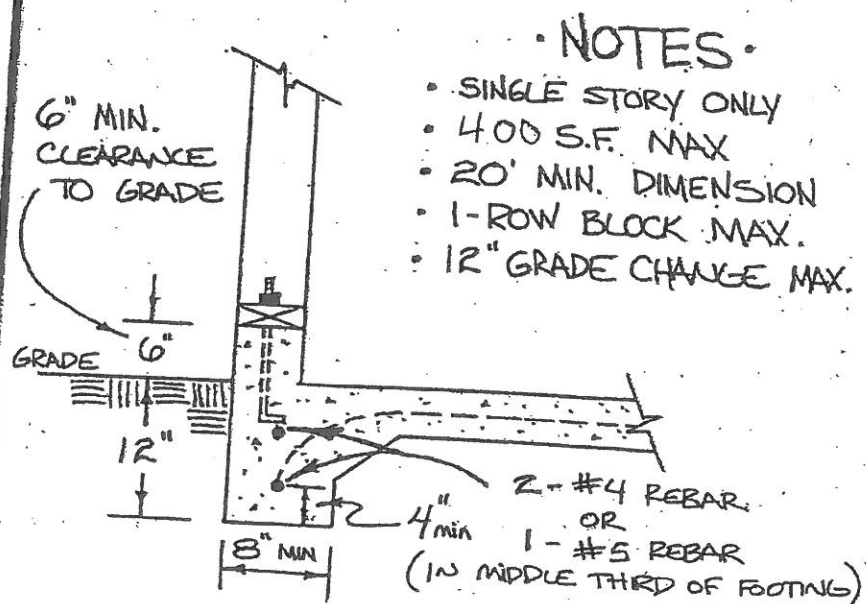 · NOTES ·
• SINGLE STORY ONLY
• 400 S.F. MAX
• 20' MIN. DIMENSION
• 1-ROW BLOCK MAX.
• 12" GRADE CHANGE MAX.
6" MIN.
CLEARANCE
TO GRADE
6"
GRADE
12"
8" MIN
4" min
2-#4 REBAR
OR
1-#5 REBAR
(IN MIDDLE THIRD OF FOOTING)